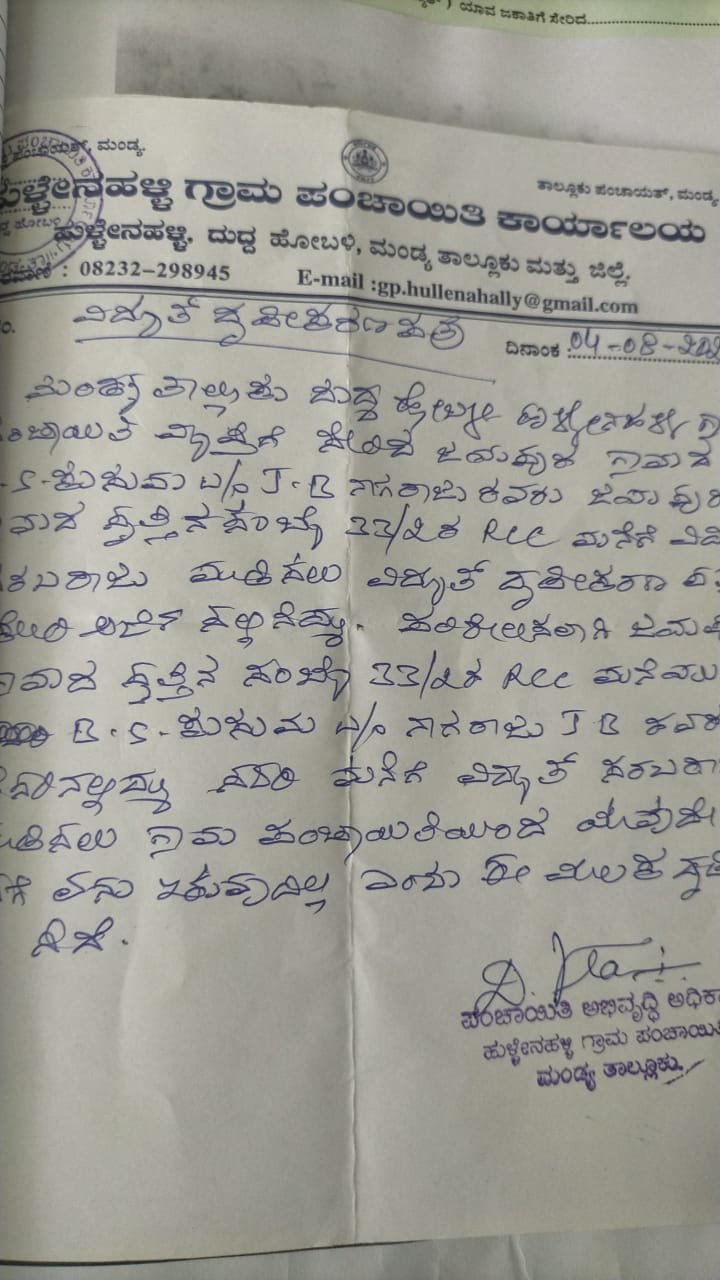 ) ಯಾವ ಜಕಾತಿಗೆ ಸೇರಿದ
ಪಂಚಾಯತ್, ಮಂಡ್ಯ.
ತಾಲ್ಲೂಕು ಪಂಚಾಯತ್, ಮಂಡ್ಯ
ಹುಳ್ಳೇನಹಳ್ಳಿ ಗ್ರಾಮ ಪಂಚಾಯಿತಿ ಕಾರ್ಯಾಲಯ
ಹುಳ್ಳೇನಹಳ್ಳಿ, ದುದ್ದ ಹೋಬಳಿ, ಮಂಡ್ಯ ತಾಲ್ಲೂಕು ಮತ್ತು ಜಿಲ್ಲೆ.
: 08232-298945 E-mail :gp.hullenahally@gmail.com
ವಿದ್ಯುತ್ ದೃಢೀಕರಣ ಪತ್ರ
ದಿನಾಂಕ : 04-08-202
ಮಂಡ್ಯ ತಾಲ್ಲೂಕು ದುದ್ದ ಹೋಬಳಿ ಹುಳ್ಳೇನಹಳ್ಳಿ ಗ್ರಾ
ಪಂಚಾಯಿತಿ ವ್ಯಾಪ್ತಿಗೆ ಸೇರಿದ ಗ್ರಾಮದ
S. ಕುಸುಮಾ w/o J.B ನಾಗರಾಜು ರವರು
ಸ್ವತ್ತಿನ ಸಂಖ್ಯೆ 33/2ರ RCC ಮನೆಗೆ
ವಿದ್ಯುತ್ ದೃಢೀಕರಣ
ಕೋರಿ ಅರ್ಜಿ ಸಲ್ಲಿಸಿದ್ದು. ಪರಿಶೀಲಿಸಲಾಗಿ
ಸ್ವತ್ತಿನ ಸಂಖ್ಯೆ 33/2ರ RCC ಮನೆಯು
B.S. ಕುಸುಮ w/o ನಾಗರಾಜು J B ರವರ
ಹೆಸರಿನಲ್ಲಿದ್ದು ಸದರಿ ಮನೆಗೆ ವಿದ್ಯುತ್ ಸರಬರಾ
ಗ್ರಾಮ ಪಂಚಾಯಿತಿಯಿಂದ ಯಾವುದೇ
ಇರುವುದಿಲ್ಲ ಎಂದು ಈ ಮೂಲಕ ದೃಢೀ
ಸಿದೆ.
ಪಂಚಾಯಿತಿ ಅಭಿವೃದ್ಧಿ ಅಧಿಕಾ
ಹುಳ್ಳೇನಹಳ್ಳಿ ಗ್ರಾಮ ಪಂಚಾಯಿತಿ
ಮಂಡ್ಯ ತಾಲ್ಲೂಕು.